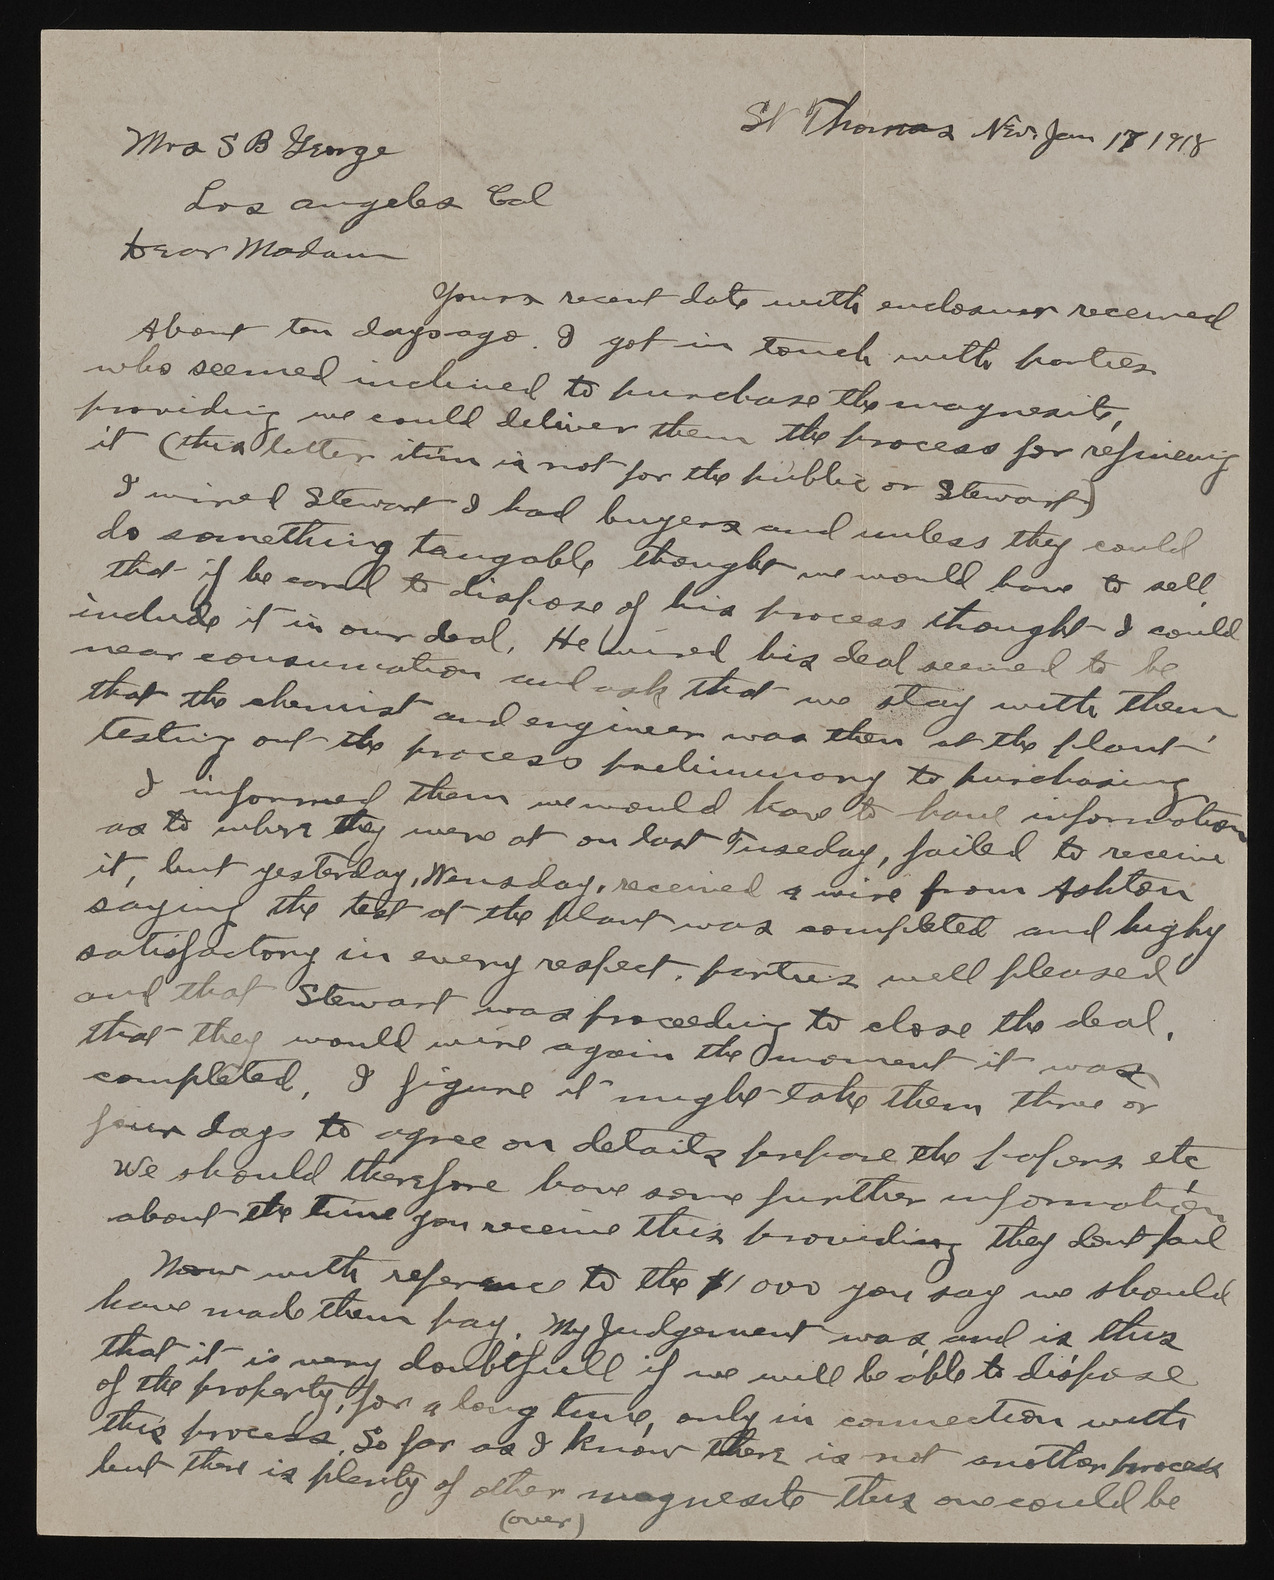 St Thomas Nev. Jan 17 1918
Mrs S B George
Los Angeles Cal
Dear Madam
Yours recent date with enclosure received
About ten days ago. I got in touch with parties
who seemed inclined to purchase the magnesite,
providing we could deliver them the process for refineing
it (this latter item is not for the public or Stewart)
I wired Stewart I had buyers and unless they could
do something tangable thought we would have to sell.
that if he cared to dispose of his process thought I could
include it in our deal. He wired his deal seemed to be
near consumation and ask that we stay with them,
that the chemist and engineer was then at the plant
testing out the process preliminary to purchasing
I informed them we would have to have information
as to where they were at on last Tuseday, failed to receive
it, but yesterday, Wensday, received a wire from Ashton
saying the test at the plant was completed and highy
satisfactory in every respect. parties well pleased
and that Stewart was proceeding to close the deal.
that they would wire again the moment it was
completed, I figure it might take them three or
four days to agree on details prepare the papers etc
We should therefore have some further information
about the time you receive this providing they dont fail
Now with reference to the $1000 you say we should
have made them pay. My Judgement was, and is this
that it is very doubtfull if we will be able to dispose
of the property, for a long time, only in connection with
this process. So far as I know there is not another process
but there is plenty of other magnesite this one could be
(over)